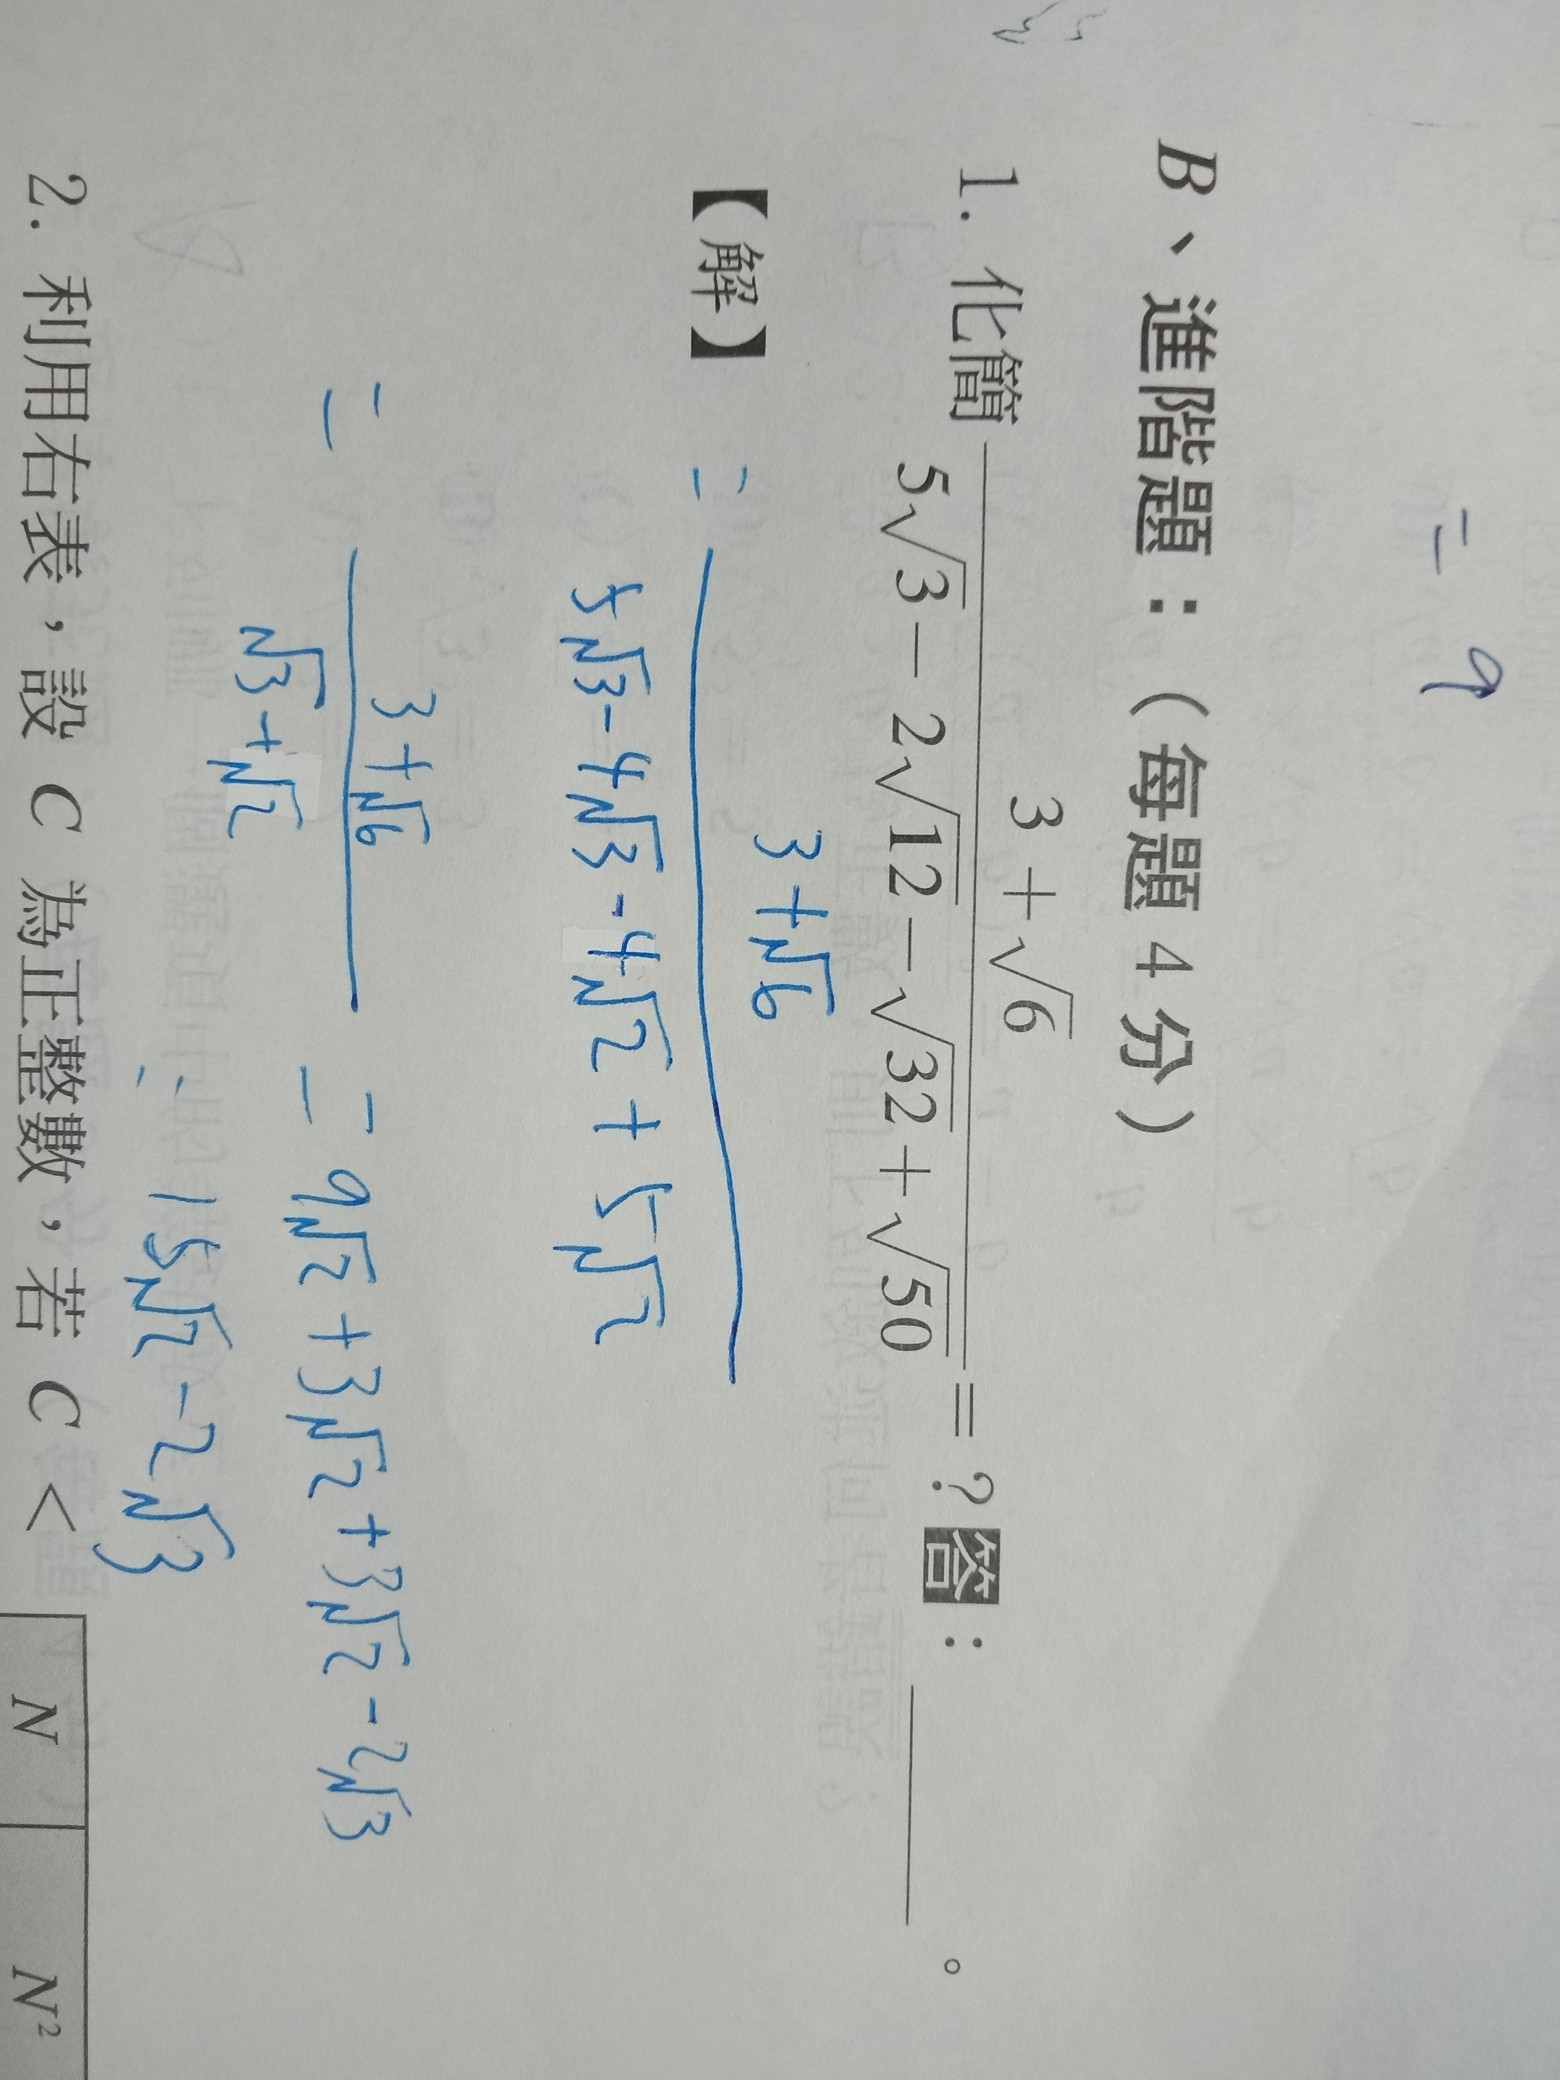 = 9
B、進階題：（每題 4 分）
1. 化簡 (3+√6)/(5√3−2√12−√32+√50) = ? 答：______。
【解】 = (3+√6)/(5√3-4√3-4√2+5√2)
= (3+√6)/(√3+√2) = 9√2+3√2+3√2-2√3
= 15√2-2√3
2. 利用右表，設 C 為正整數，若 C <
N N²